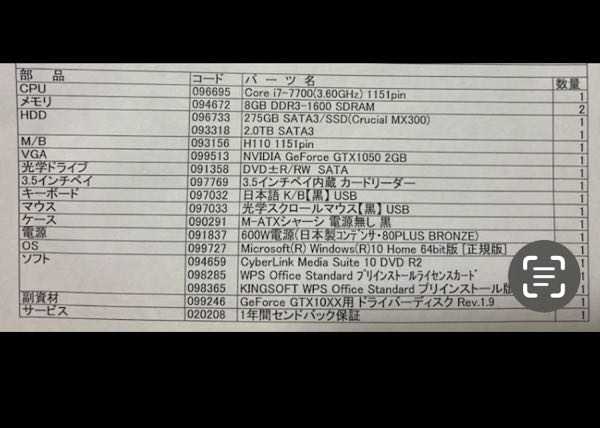 部 品 コード パ ー ツ 名 数量
CPU 096695 Core i7-7700(3.60GHz) 1151pin 1
メモリ 094672 8GB DDR3-1600 SDRAM 2
HDD 096733 275GB SATA3/SSD(Crucial MX300) 1
093318 2.0TB SATA3 1
M/B 093156 H110 1151pin 1
VGA 099513 NVIDIA GeForce GTX1050 2GB 1
光学ドライブ 091358 DVD±R/RW SATA 1
3.5インチベイ 097769 3.5インチベイ内蔵 カードリーダー 1
キーボード 097032 日本語 K/B【黒】 USB 1
マウス 097033 光学スクロールマウス【黒】 USB 1
ケース 090291 M-ATXシャーシ 電源無し 黒 1
電源 091837 600W電源(日本製コンデンサ・80PLUS BRONZE) 1
OS 099727 Microsoft(R) Windows(R)10 Home 64bit版 [正規版] 1
ソフト 094659 CyberLink Media Suite 10 DVD R2
098285 WPS Office Standard プリインストールライセンスカード
098365 KINGSOFT WPS Office Standard プリインストール版 1
副資材 099246 GeForce GTX10XX用 ドライバーディスク Rev.1.9 1
サービス 020208 1年間センドバック保証 1